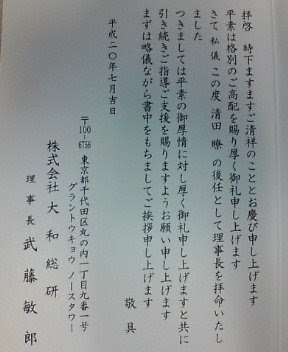 拝啓　時下ますますご清祥のこととお慶び申し上げます
平素は格別のご高配を賜り厚く御礼申し上げます
さて　私儀　この度　清田　瞭　の後任として理事長を拝命いたし
ました
つきましては平素の御厚情に対し厚く御礼申し上げますと共に
引き続きご指導ご支援を賜りますようお願い申し上げます
まずは略儀ながら書中をもちましてご挨拶申し上げます
敬　具
平成二〇年七月吉日
〒100-6756　東京都千代田区丸の内一丁目九番一号
グラントウキョウ　ノースタワー
株式会社　大　和　総　研
理　事　長　武　藤　敏　郎